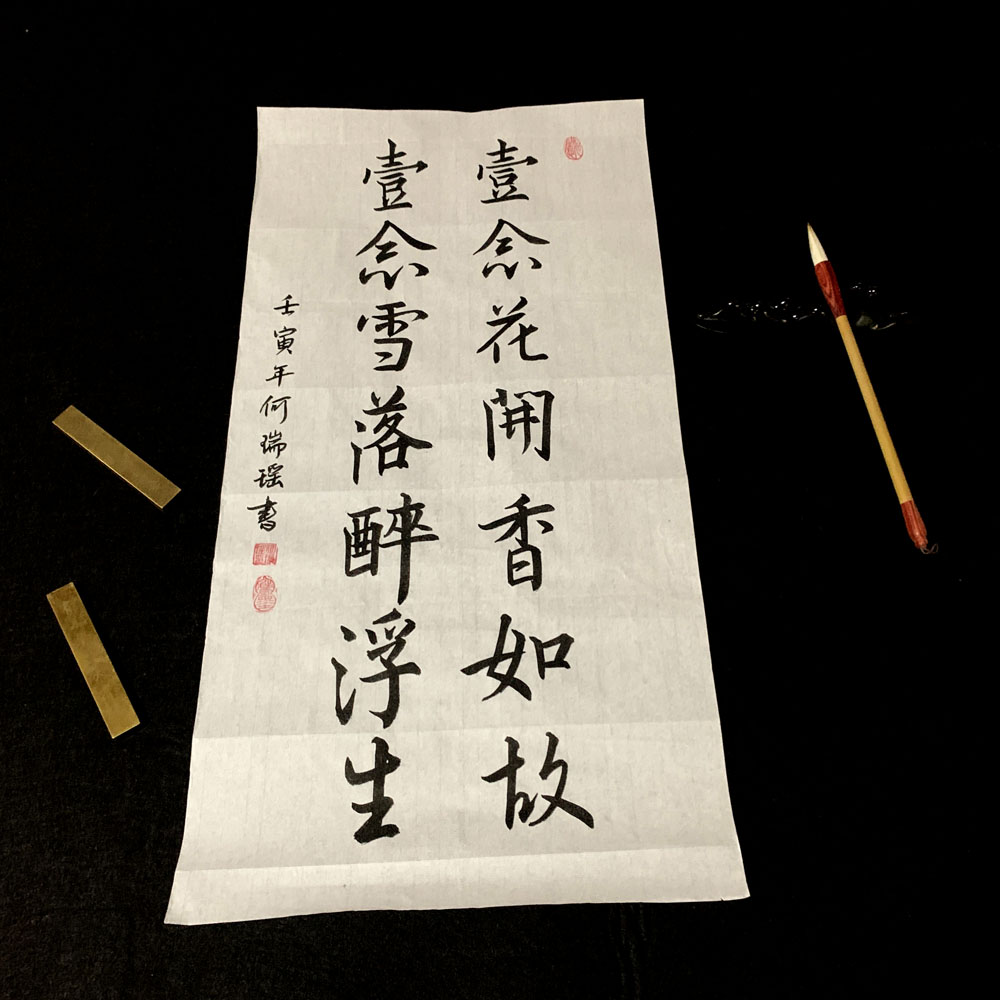 壹念花開香如故
壹念雪落醉浮生
壬寅年何瑞瑶書